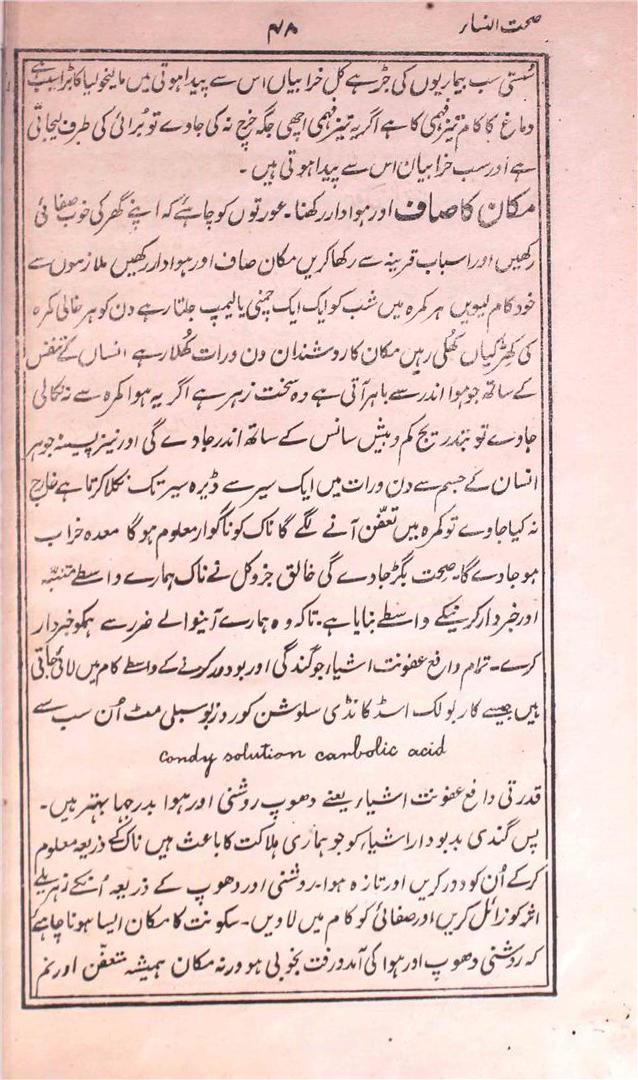 صحت النسار
۴۸
سُستی سب بیماریوں کی جڑ ہے کل خرابیاں اس سے پیدا ہوتی میں مالیخولیا کا بڑا سبب ہے
دماغ کا کام تیز فہمی کا ہے اگر یہ تیز فہمی اچھی جگہ خرچ نہ کی جاوے تو بُرائی کی طرف لیجاتی
ہے اور سب خرابیان اس سے پیدا ہوتی ہیں ۔
مکان کا صاف اور ہوادار رکھنا ۔ عورتوں کو چاہئے کہ اپنے گھر کی خوب صفائی
رکھیں اور اسباب قرینہ سے رکھا کریں مکان صاف اور ہوادار رکھیں ملازموں سے
خود کام لیویں ہر کمرہ میں شب کو ایک ایک چمنی یا لیمپ جلتا رہے دن کو ہر خالی کمرہ
کی کھڑکیاں کھُلی رہیں مکان کا روشندان دن و رات کھُلا رہے انسان کے تنفس
کے ساتھ جو ہوا اندر سے باہر آتی ہے وہ سخت زہر ہے اگر یہ ہوا کمرہ سے نہ نکالی
جاوے تو بتدریج کم و بیش سانس کے ساتھ اندر جاوے گی اور نیز پسینہ جو ہر
انسان کے جسم سے دن و رات میں ایک سیر سے ڈیرہ سیر تک نکلا کرتا ہے خارج
نہ کیا جاوے تو کمرہ میں تعفّن آنے لگے گا ناک کو ناگوار معلوم ہوگا معدہ خراب
ہو جاوے گا۔ صحت بگڑ جاوے گی خالق جزو کل نے ناک ہمارے واسطے متنبّہ
اور خبردار کرنیکے واسطے بنایا ہے۔ تاکہ وہ ہمارے آنیوالے ضرر سے ہمکو خبردار
کرے۔ تمام دافع عفونت اشیاء جو گندگی اور بو دور کرنے کے واسطے کام میں لائی جاتی
ہیں جیسے کاربولک اسڈ کانڈی سلوشن کوردزیو سبلی مٹ اُن سب سے
Condy solution canbolic acid
قدرتی دافع عفونت اشیاء یعنے دھوپ روشنی اور ہوا بدرجہا بہتر ہیں ۔
پس گندی بدبودار اشیاء کو جو ہماری ہلاکت کا باعث ہیں ناک کے ذریعہ معلوم
کر کے اُن کو دور کریں اور تازہ ہوا۔ روشنی اور دھوپ کے ذریعہ اُنکے زہریلے
اثر کو زائل کریں اور صفائی کو کام میں لاویں۔ سکونت کا مکان ایسا ہونا چاہئے
کہ روشنی دھوپ اور ہوا کی آمد و رفت بخوبی ہو ورنہ مکان ہمیشہ متعفّن اور نم